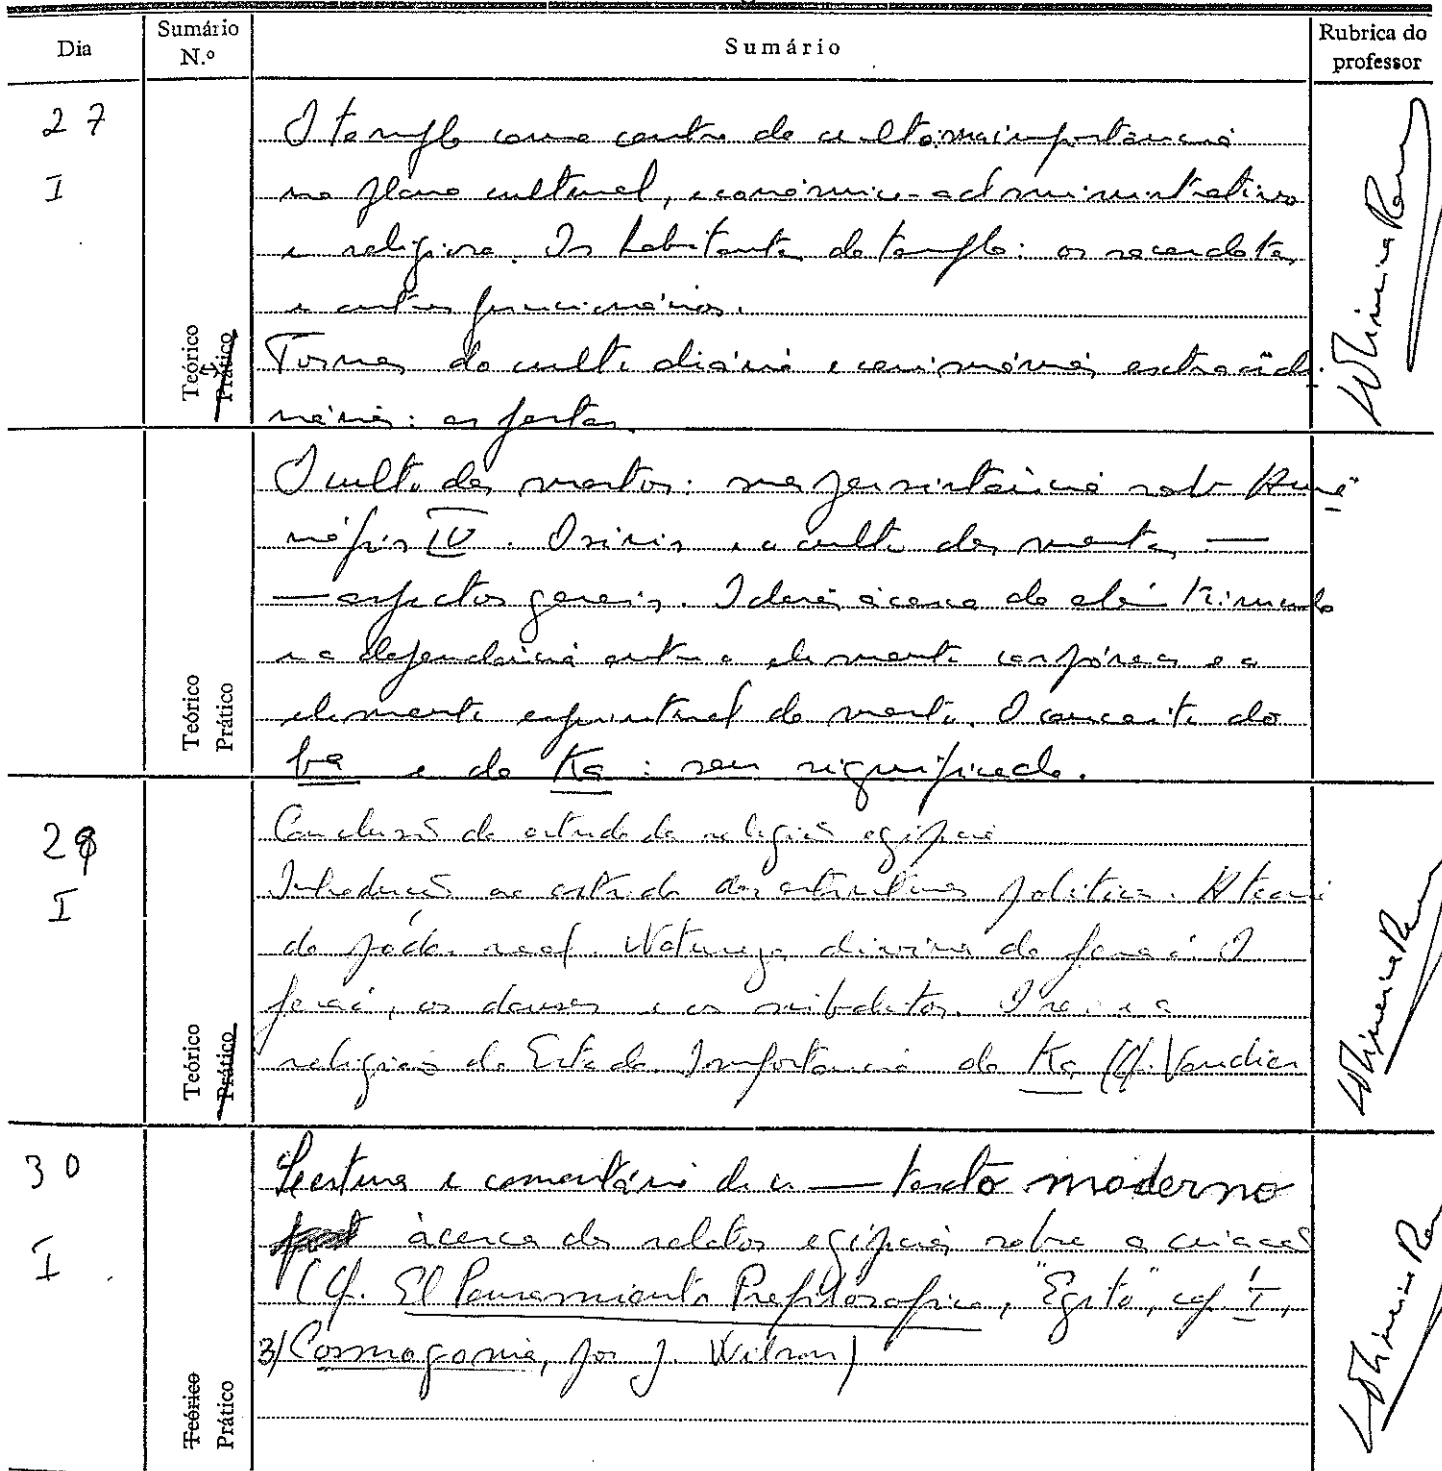 Dia
Sumário N.º
Sumário
Rubrica do professor
27
I
Teórico
Prático
O templo como centro de culto: sua importância
no plano cultural, económico-administrativo
e religioso. Os habitantes do templo: os sacerdotes
e outros funcionários.
Formas do culto diário e cerimónias extraordi-
nárias: as festas.
Teórico
Prático
O culto dos mortos: sua persistência sob Ame-
nófis IV. Osiris e o culto dos mortos —
— aspectos gerais. Ideias àcerca do além túmulo
e a dependência entre o elemento corpóreo e o
elemento espiritual do morto. O conceito do
ba e do Ka: seu significado.
29
I
Teórico
Prático
Conclusão do estudo da religião egípcia
Introdução ao estudo das estruturas políticas. A teoria
do poder real. Natureza divina do faraó. O
faraó, os deuses e os súbditos. O rei e a
religião do Estado. Importância do Ka (Cf. Vandier
30
I
Teórico
Prático
Leitura e comentário de um — texto moderno
àcerca dos relatos egípcios sobre a criação
(Cf. El Pensamiento Prefilosofico, "Egito", cap. I,
3) Cosmogonia, por J. Wilson)